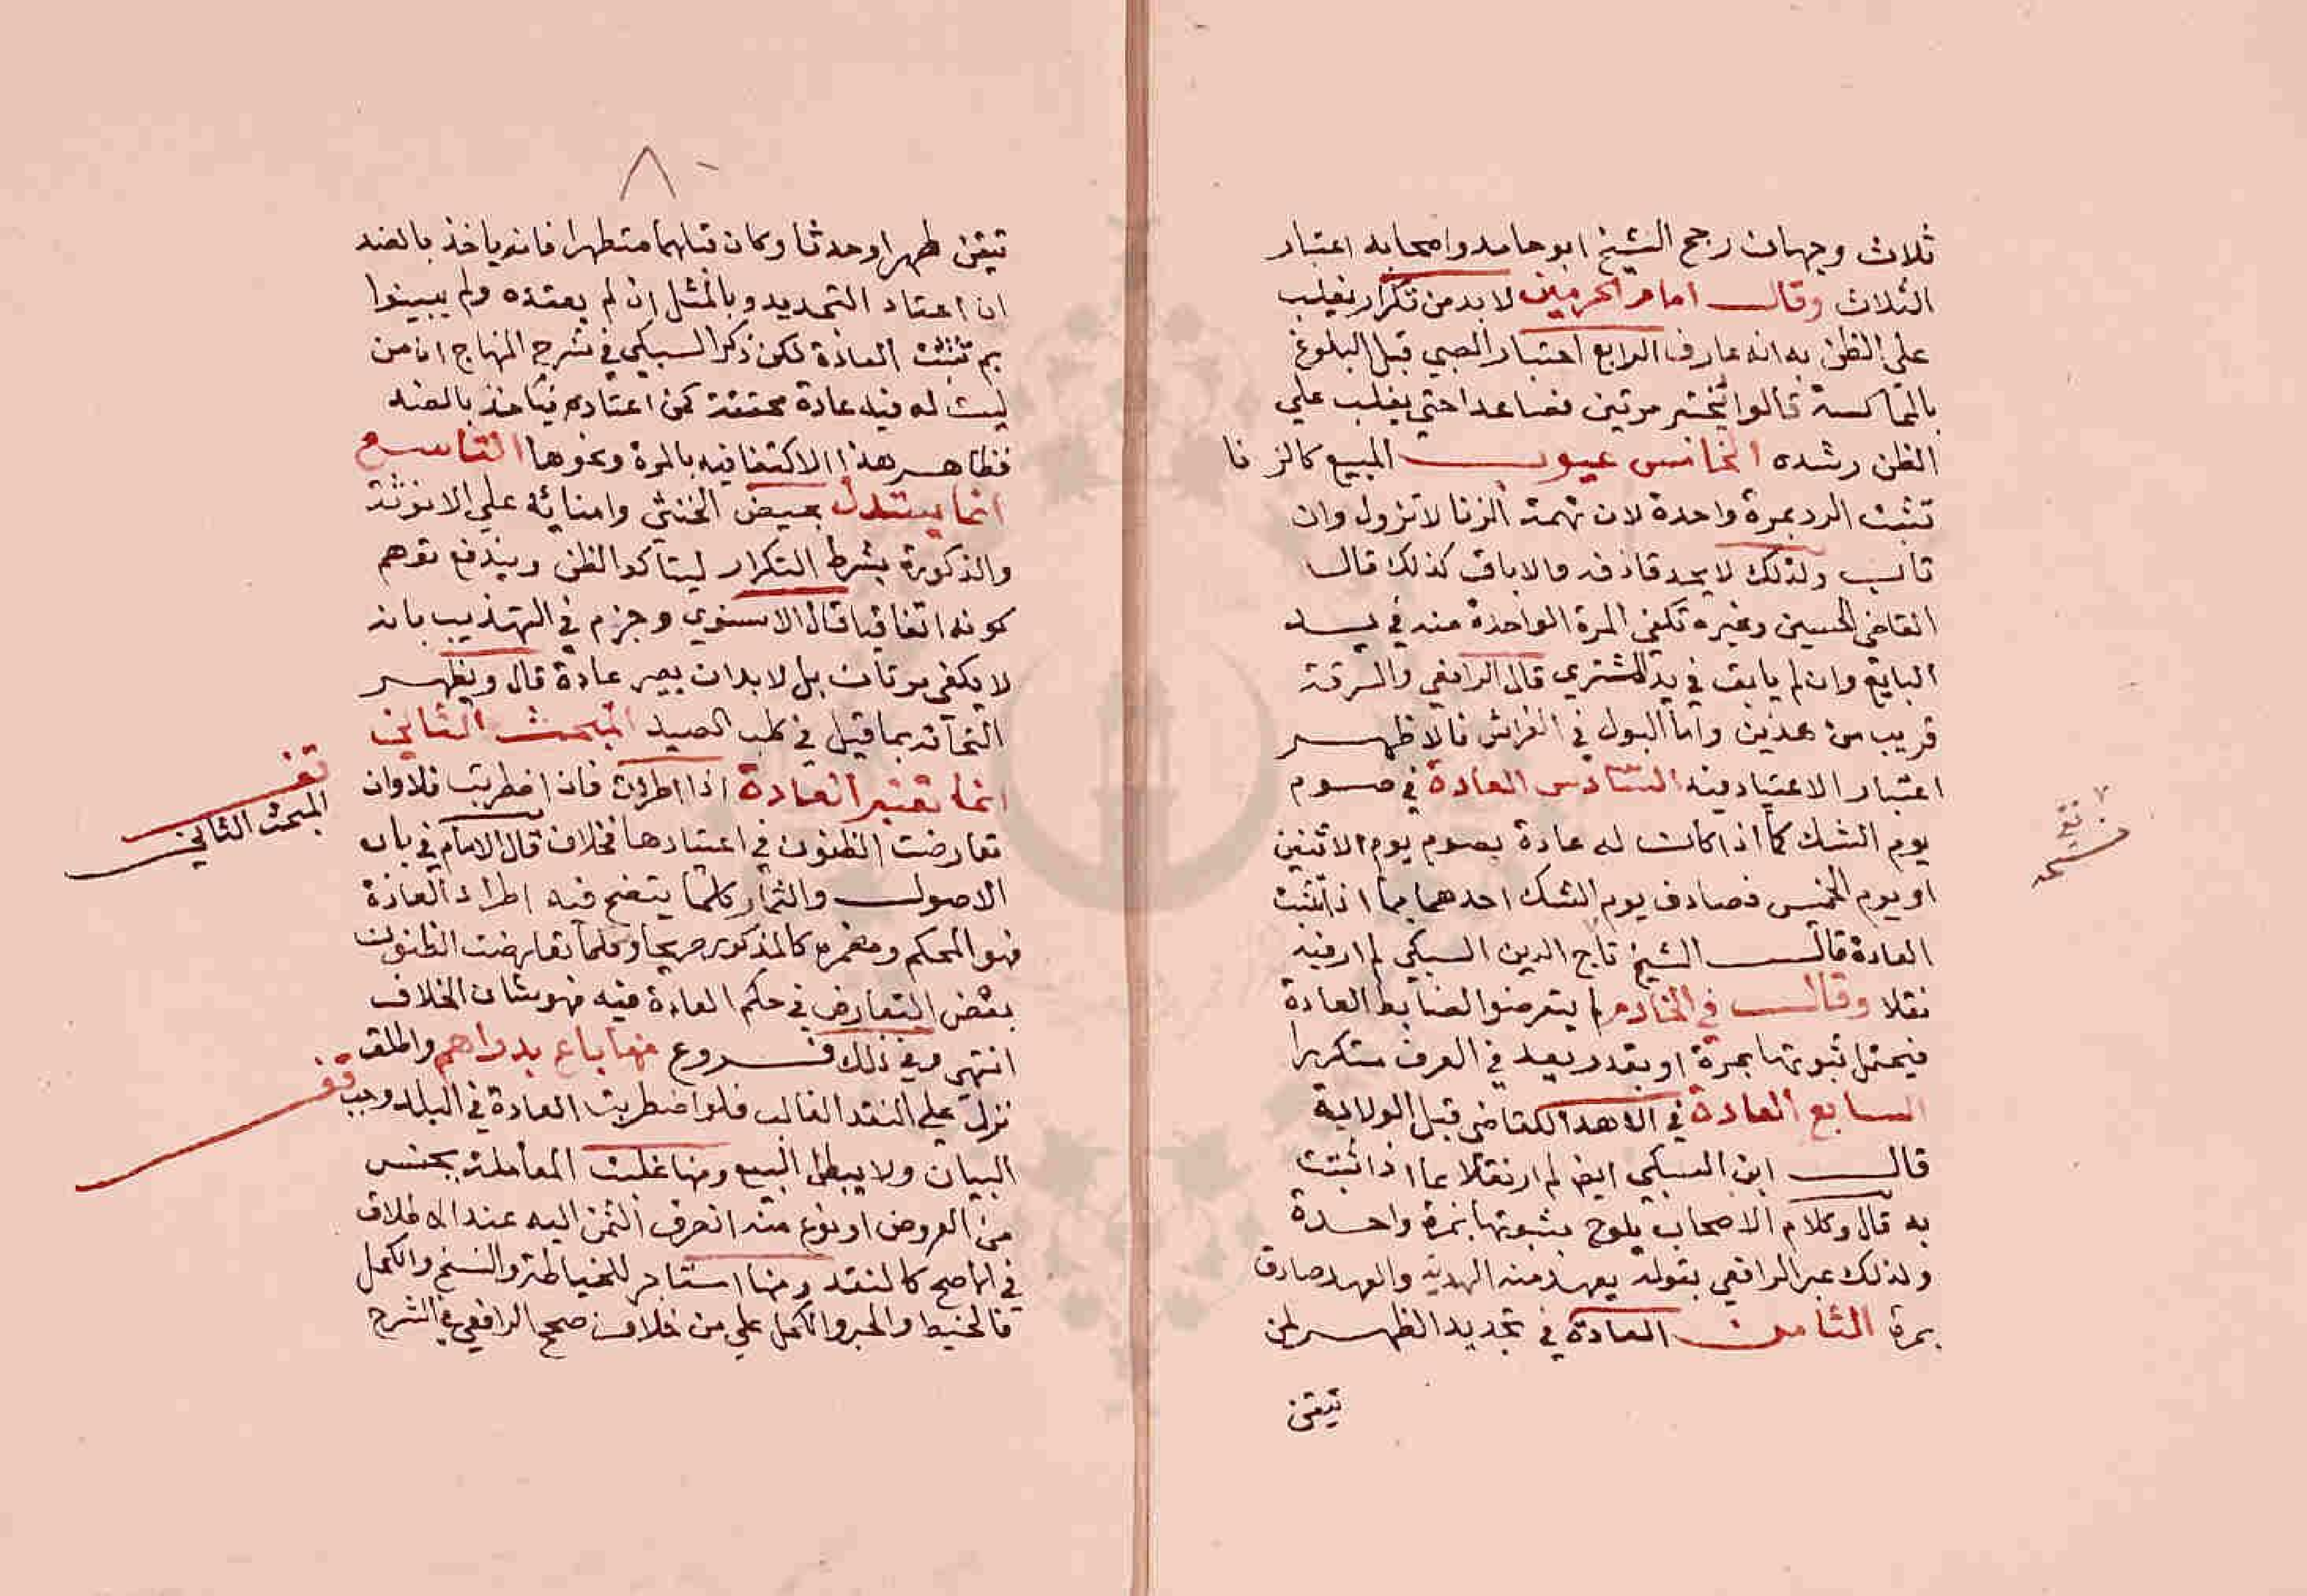 ثلاث وجهان رجح الشيخ ابو حامد واصحابه اعتبار
الثلاث وقال امام الحرمين لا بد من تكرار يغلب
على الظن به انه عارف الرابع اختبار الصبي قبل البلوغ
بالمماكسة قالوا يختبر مرتين فصاعدا حتى يغلب علي
الظن رشده الخامس عيوب المبيع كالزنا
تثبت الرد بمرة واحدة لان تهمة الزنا لا تزول وان
تاب ولذلك لا يحد قاذفه والاباق كذلك قال
القاضي الحسين وغيره تكفي المرة الواحدة منه في يد
البايع وان لم يابق في يد المشتري قال الرافعي والسرقة
قريب من هذين واما البول في الفراش فالاظهر
اعتبار الاعتياد فيه السادس العادة في صوم
يوم الشك كما اذا كانت له عادة بصوم يوم الاثنين
او يوم الخميس فصادف يوم الشك احدهما بما اذا تثبت
العادة قال الشيخ تاج الدين السبكي لم ار فيه
نقلا وقال في الخادم لم يتعرضوا لضابط العادة
فيحتمل ثبوتها بمرة او بقدر يعد في العرف متكررا
السابع العادة في الاهدا للقاضي قبل الولاية
قال ابن السبكي ايض لم ار نقلا بما اذا تثبت
به قال وكلام الاصحاب يلوح بثبوتها بمرة واحدة
ولذلك عبر الرافعي بقوله يعهد منه الهدية والعهد صادق
بمرة الثامن العادة في تجديد الطهر لمن
تيقن
نسخه
٨
تيقن طهرا وحدثا وكان قبلهما متطهرا فانه ياخذ بالضد
ان اعتاد التجديد وبالمثل ان لم يعتده ولم يبينوا
بم تثبت العادة لكن ذكر السبكي في شرح المنهاج ان من
ثبت له فيه عادة محققة كمن اعتاده فياخذ بالضد
فظاهر هذا الاكتفا فيه بالمرة ونحوها التاسع
انما يستدل بحيض الخنثي وامنائه علي الانوثة
والذكورة بشرط التكرار ليتاكد الظن ويندفع توهم
كونه اتفاقيا قال الاسنوي وجزم في التهذيب بانه
لا يكفي مرتان بل لا بد ان يصير عادة قال ونظير
التحاقه بما قيل في كلب الصيد المبحث الثاني
انما تعتبر العادة اذا اطردت فان اضطربت فلا وان
تعارضت الظنون في اعتبارها فخلاف قال الامام في باب
الاصول والثمار كلما يتضح فيه اطراد العادة
فهو المحكم ومضمره كالمذكور صريحا وكلما تعارضت الظنون
بعض التعارض في حكم العادة فيه فهو مثار الخلاف
انتهي وفي ذلك فروع منها باع بدراهم واطلق
نزل علي النقد الغالب فلو اضطربت العادة في البلد وجب
البيان ولا يبطل البيع ومنها غلبت المعاملة بجنس
من العروض او نوع منه انصرف الثمن اليه عند الاطلاق
في الاصح كالنقد ومنها استاجر للخياطة والنسخ والكحل
فالخيط والحبر والكحل علي من خلاف صحح الرافعي في الشرح
المبحث الثاني
قف